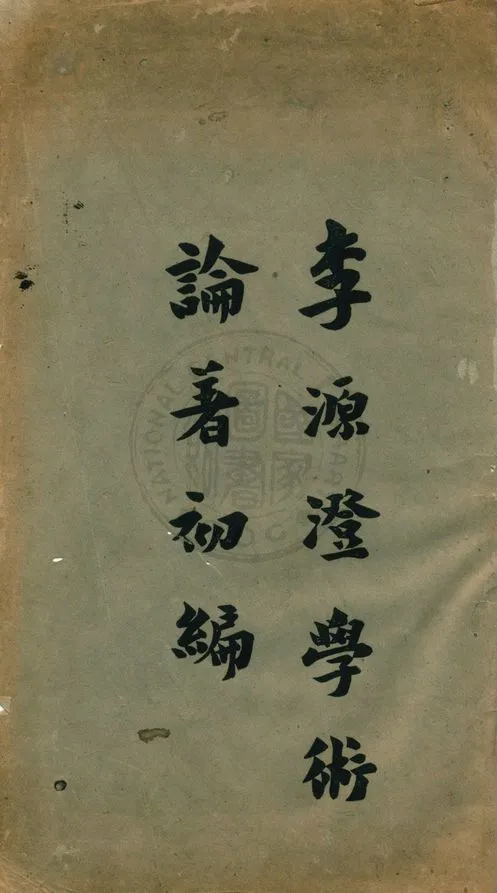 李源澄學術
論著初編
NATIONAL CENTRAL LIBRARY
國家圖書館